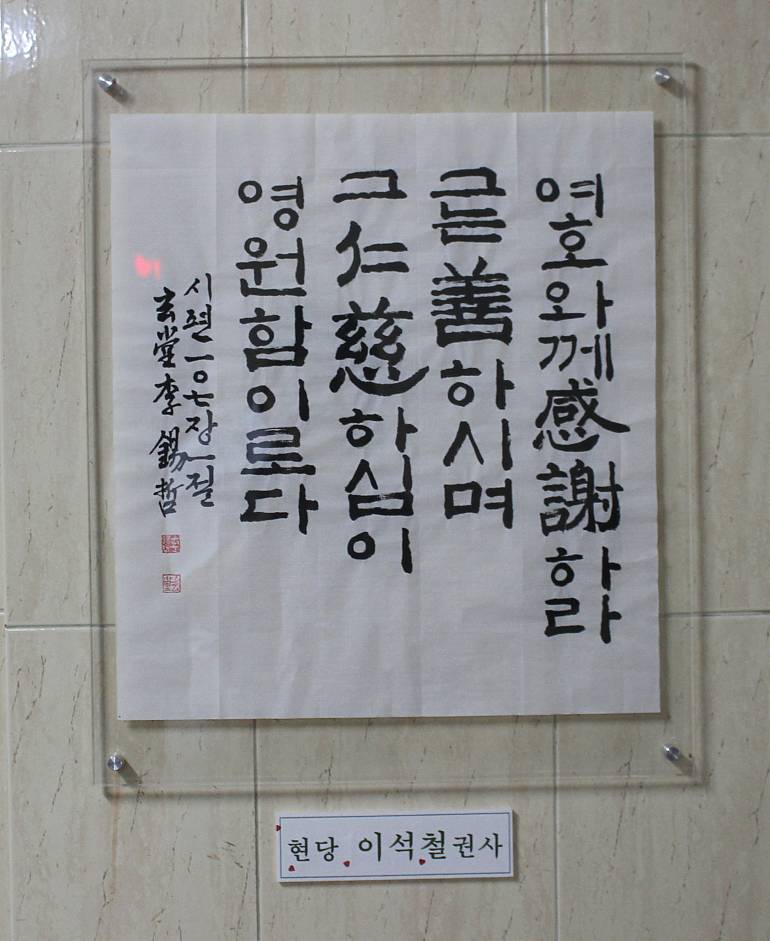 여호와께感謝하라
그는善하시며
그仁慈하심이
영원함이로다
시편一〇七장一절
玄堂李錫哲
현당 이석철권사